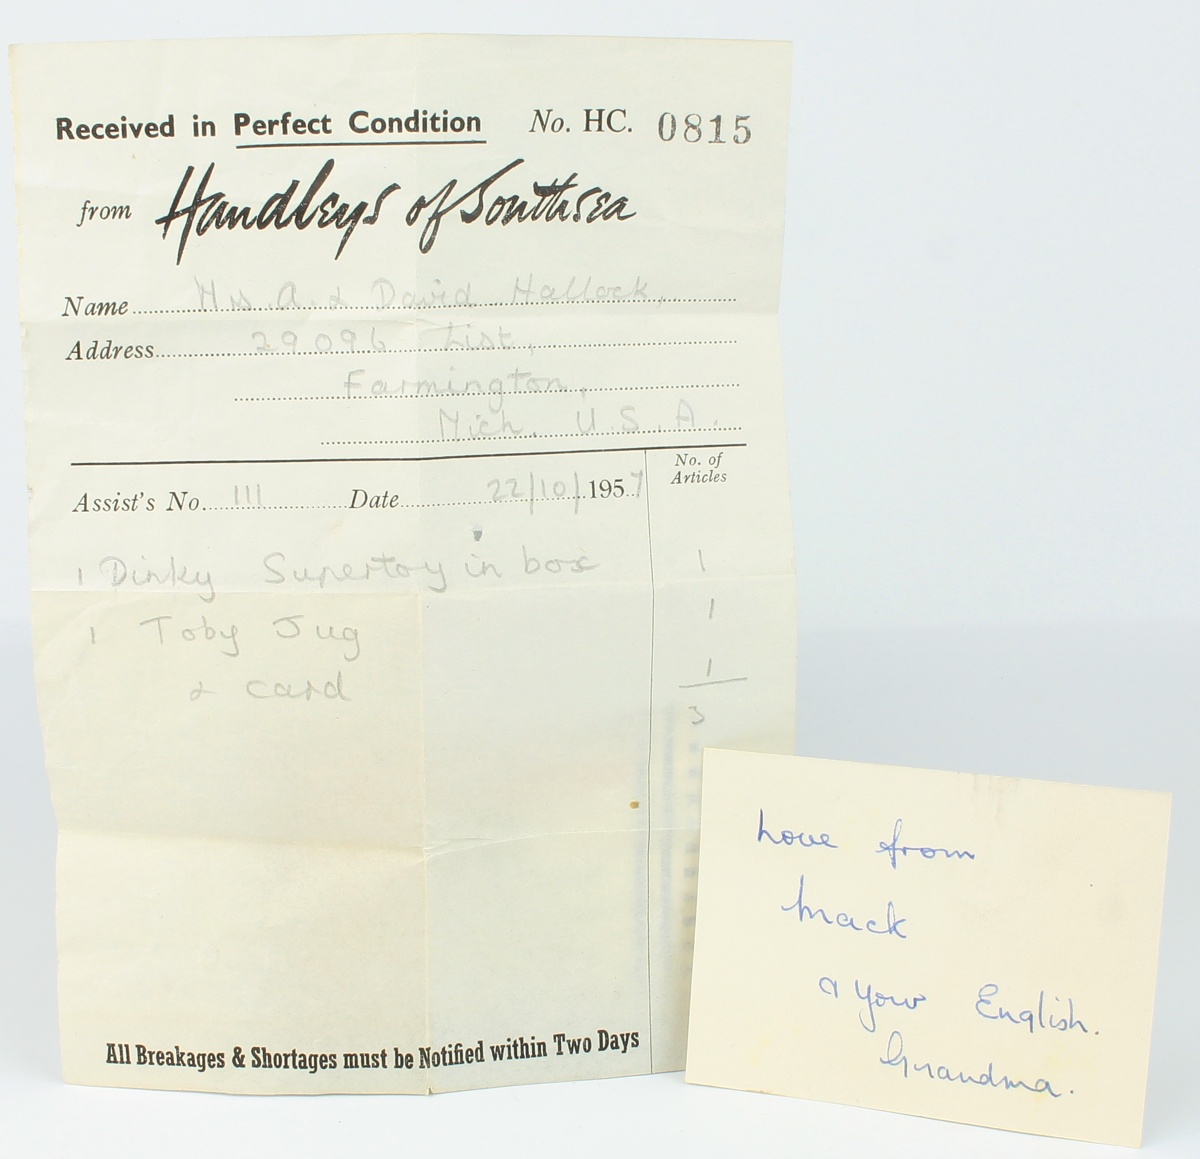 Received in Perfect Condition No. HC. 0815
from Handleys of Southsea
Name Mrs A. & David Hallock,
Address 29096 List,
Farmington,
Mich. U.S.A.
No. of Articles
Assist's No. 111 Date 22/10/1957
1 Dinky Supertoy in box 1
1 Toby Jug 1
& card 1
3
All Breakages & Shortages must be Notified within Two Days
Love from
Mack
& Your English.
Grandma.